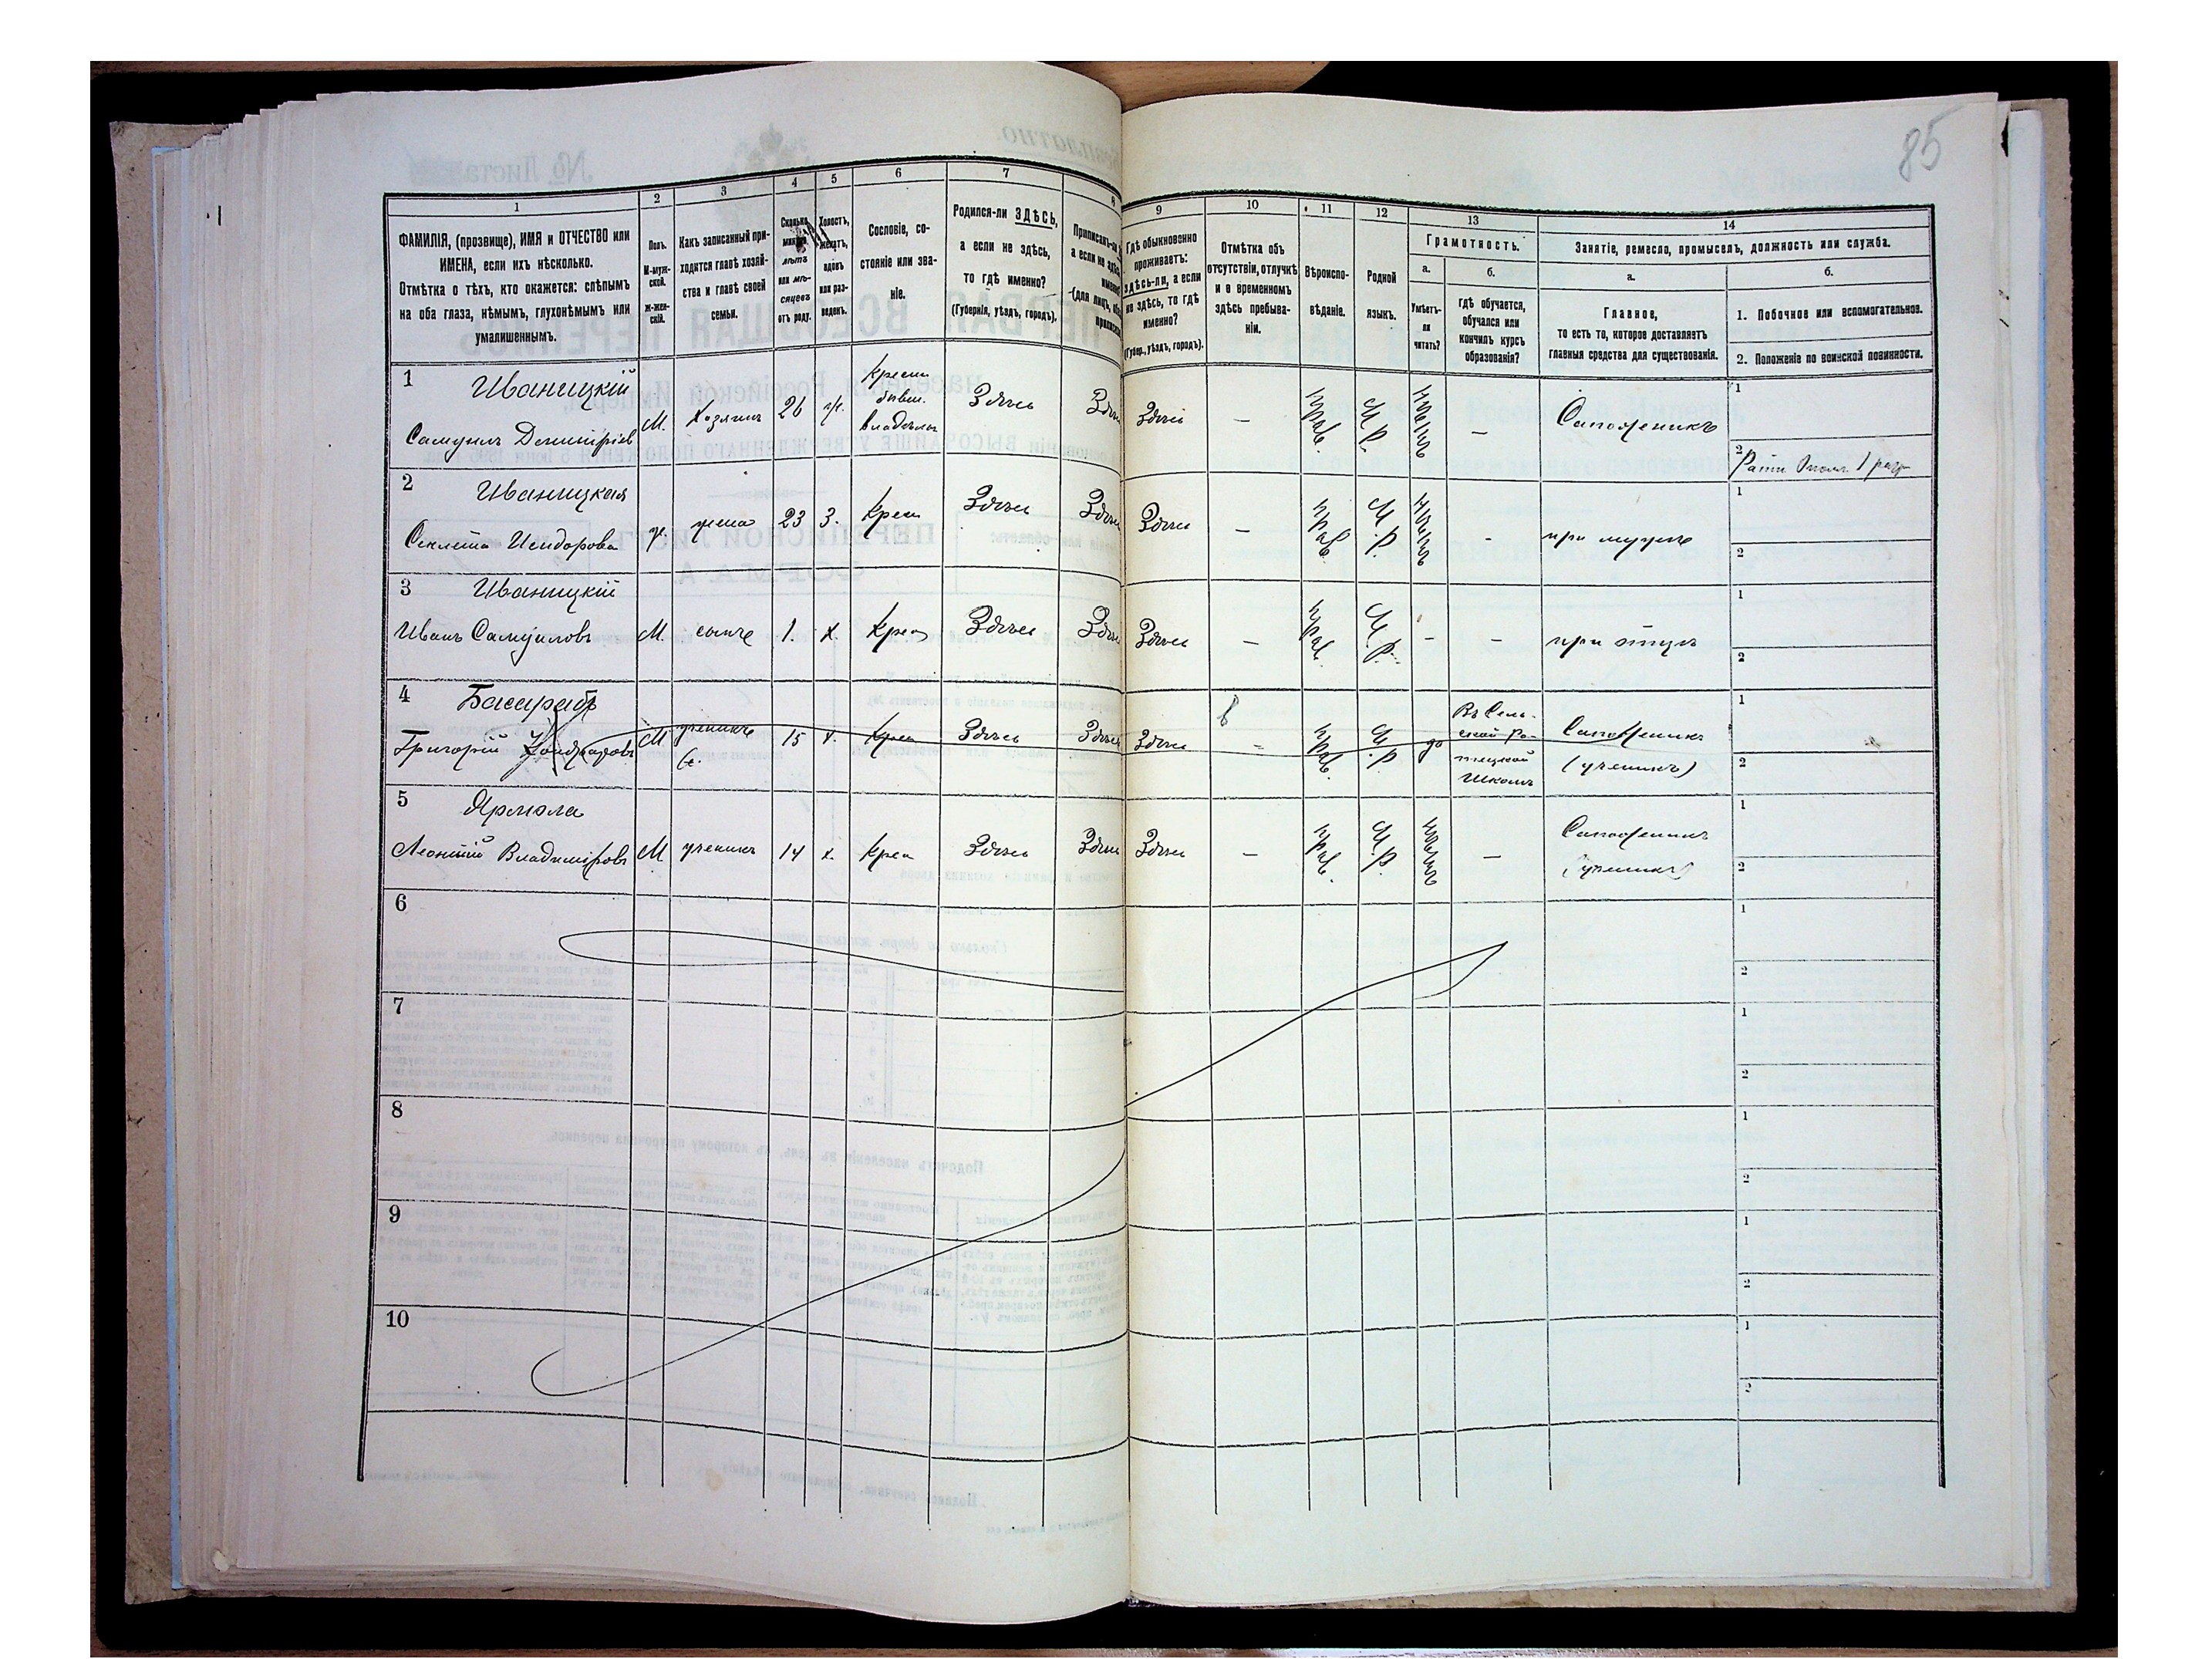 85
1
2
3
4
5
6
7
8
9
10
11
12
13
14
ФАМИЛІЯ, (прозвище), ИМЯ и ОТЧЕСТВО или
ИМЕНА, если ихъ нѣсколько.
Отмѣтка о тѣхъ, кто окажется: слѣпымъ
на оба глаза, нѣмымъ, глухонѣмымъ или
умалишеннымъ.
Полъ.
М-муж-
ской.
ж-жен-
скій.
Какъ записанный при-
ходится главѣ хозяй-
ства и главѣ своей
семьи.
Сколько
минуло
лѣтъ
или мѣ-
сяцевъ
отъ роду.
Холостъ,
женатъ,
вдовъ
или раз-
веденъ.
Сословіе, со-
стояніе или зва-
ніе.
Родился-ли ЗДѢСЬ,
а если не здѣсь,
то гдѣ именно?
(Губернія, уѣздъ, городъ).
Приписанъ-ли
а если не здѣсь
(для лицъ,
Гдѣ обыкновенно
проживаетъ:
здѣсь-ли, а если
не здѣсь, то гдѣ
именно?
(Губер., уѣздъ, городъ).
Отмѣтка объ
отсутствіи, отлучкѣ
и о временномъ
здѣсь пребыва-
ніи.
Вѣроиспо-
вѣданіе.
Родной
языкъ.
Грамотность.
а.
Умѣетъ-
ли
читать?
б.
гдѣ обучается,
обучался или
кончилъ курсъ
образованія?
Занятіе, ремесло, промыселъ, должность или служба.
а.
Главное,
то есть то, которое доставляетъ
главныя средства для существованія.
б.
1. Побочное или вспомогательное.
2. Положеніе по воинской повинности.
1 Иваницкій
Самуилъ Димитріевъ
М. Хозяинъ 26 ж.
Крест.
бывш.
владѣль
Здѣсь Здѣсь Здѣсь — Прав. М.Р. нѣтъ — Сапожникъ
1
2 Ратн. Опол. 1 разр
2 Иваницкая
Секлета Исидорова
ж. жена 23 З. Крест Здѣсь Здѣсь Здѣсь — Прав. М.Р. нѣтъ - при мужѣ
1
2
3 Иваницкій
Иванъ Самуиловъ
М. сынъ 1. х. Крест Здѣсь Здѣсь Здѣсь — Прав. М.Р. - - при отцѣ
1
2
4 Басарабъ
Григорій
М ученикъ 15 х. Крест Здѣсь Здѣсь Здѣсь - Прав. М.Р. да
Въ Сель-
ской
Школѣ
Сапожникъ
(ученикъ)
1
2
5 Ярмола
Леонтій Владиміровъ
М ученикъ 14 х. Крест Здѣсь Здѣсь Здѣсь — Прав. М.Р. нѣтъ —
Сапожникъ
(ученикъ)
1
2
6
1
2
7
1
2
8
1
2
9
1
2
10
1
2